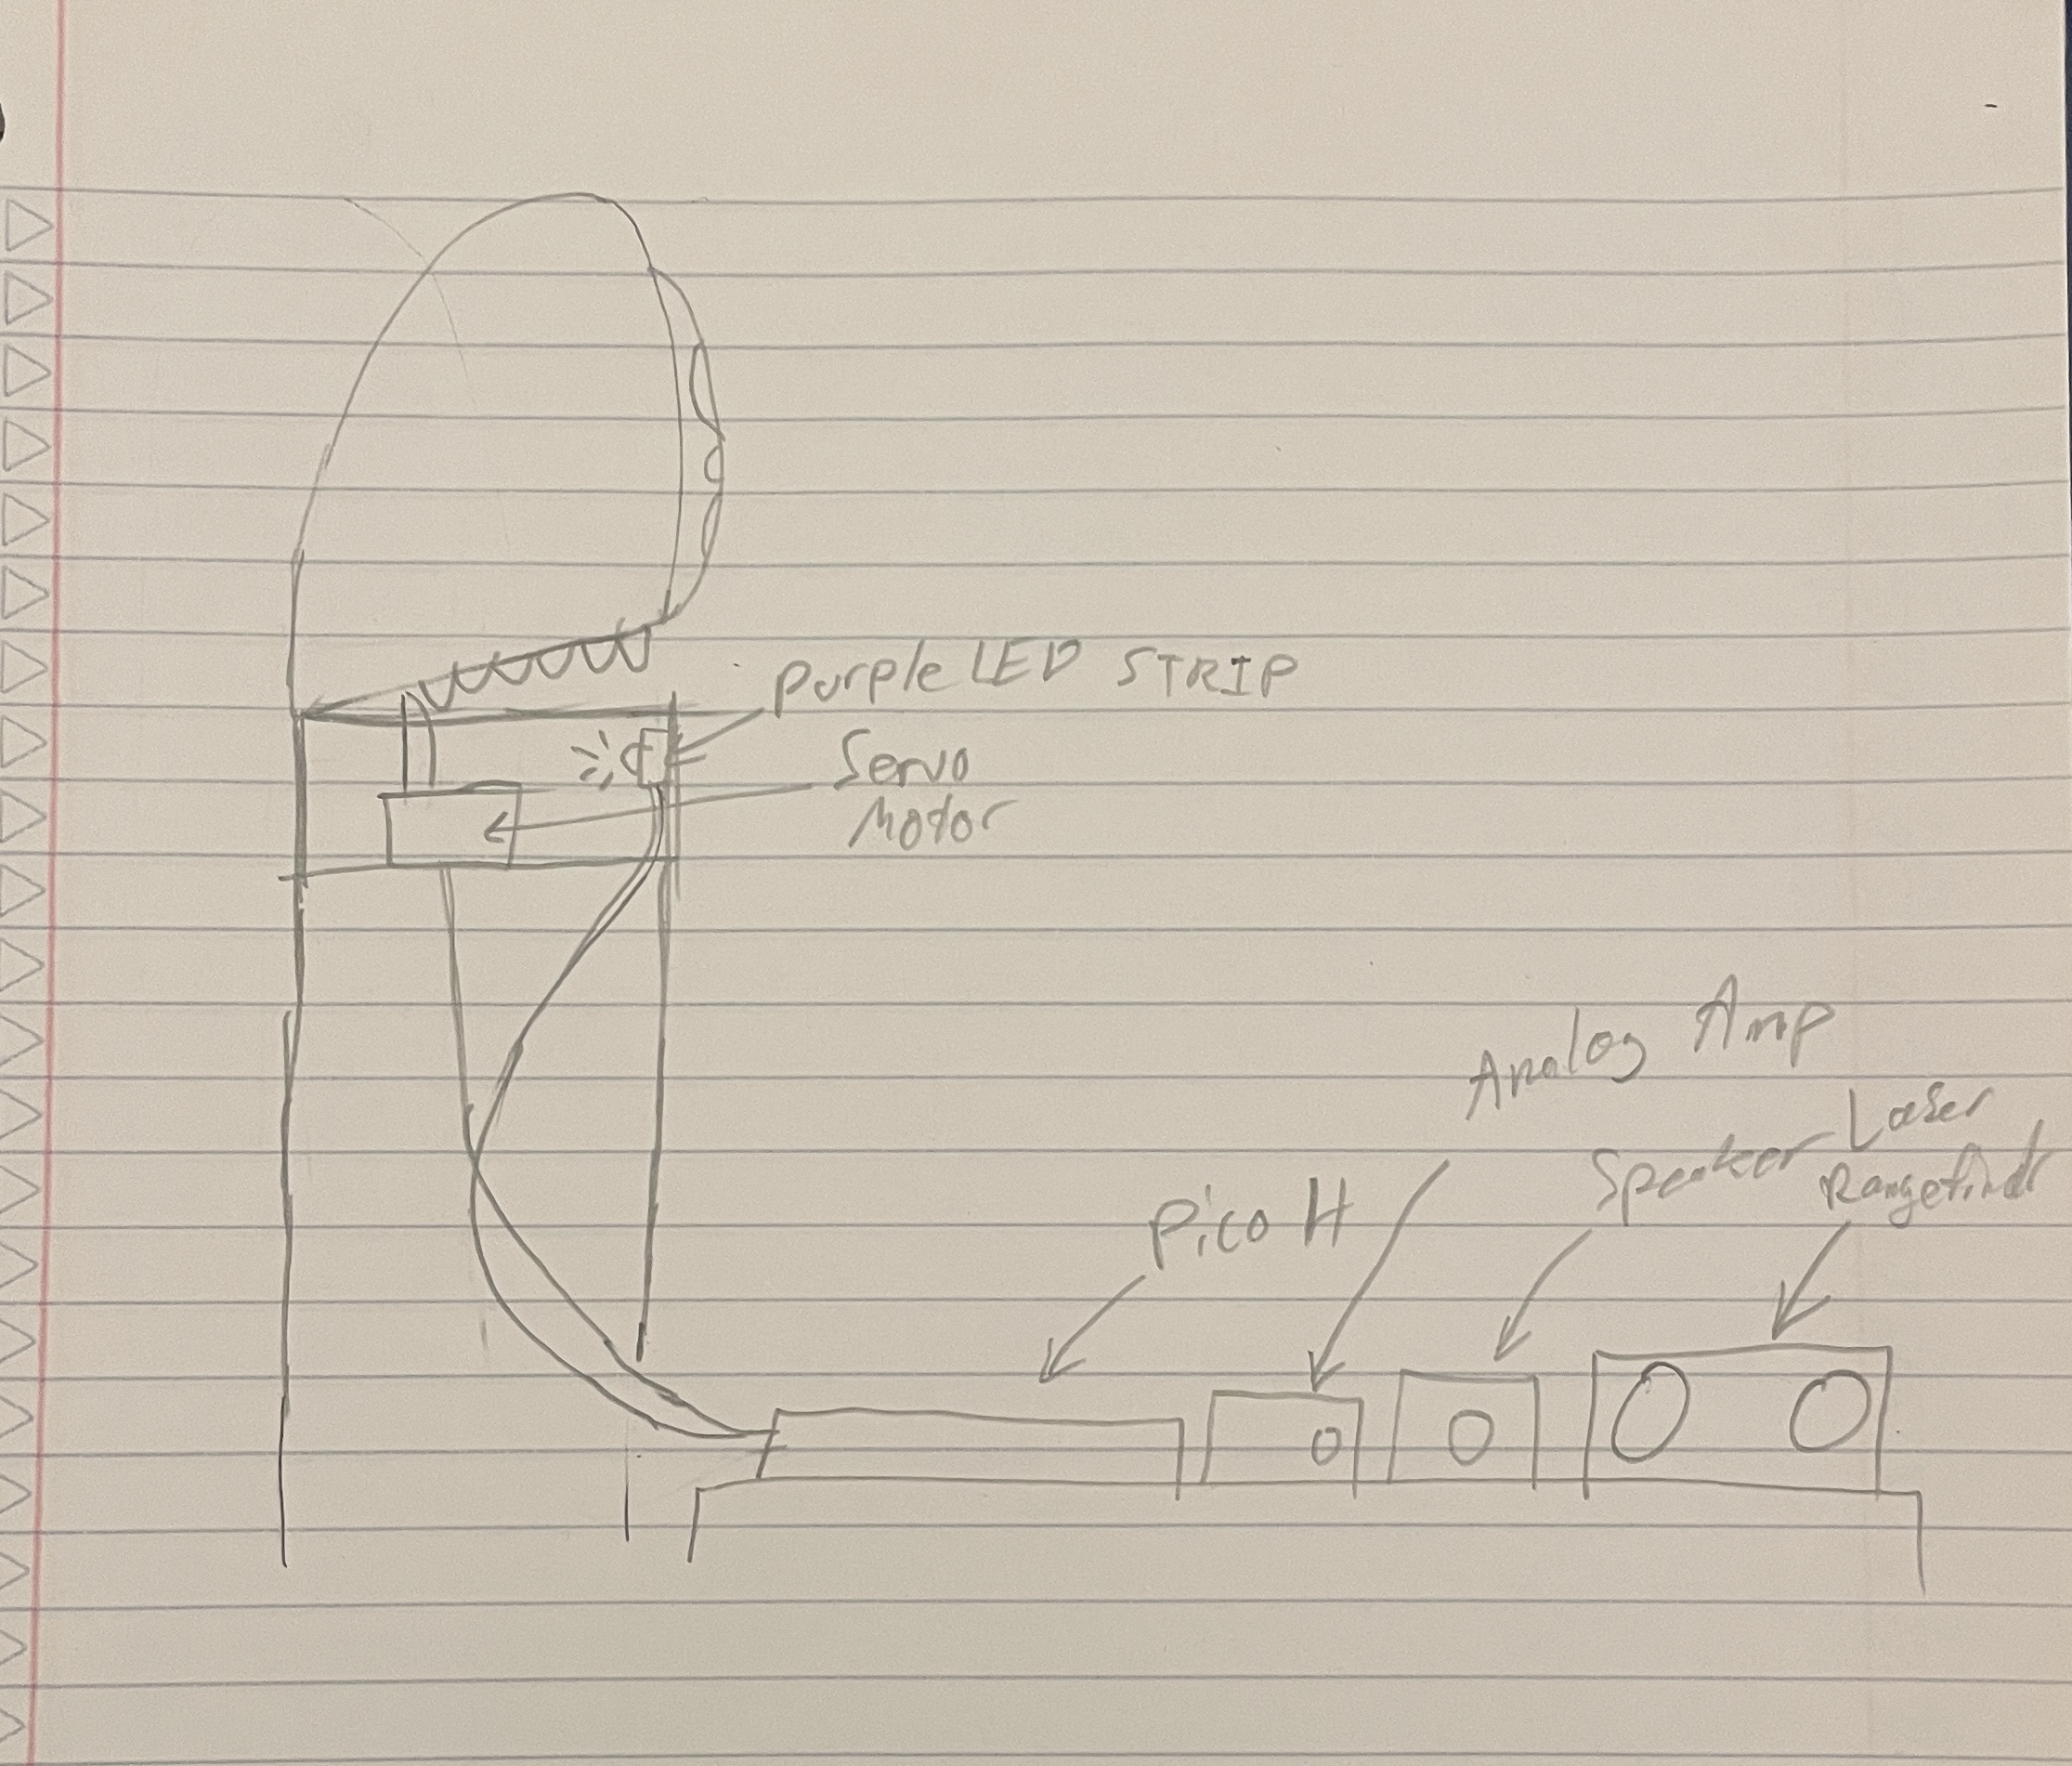 Purple LED STRIP
Servo
Motor
Analog Amp
Speaker
Laser
Rangefindr
Pico H